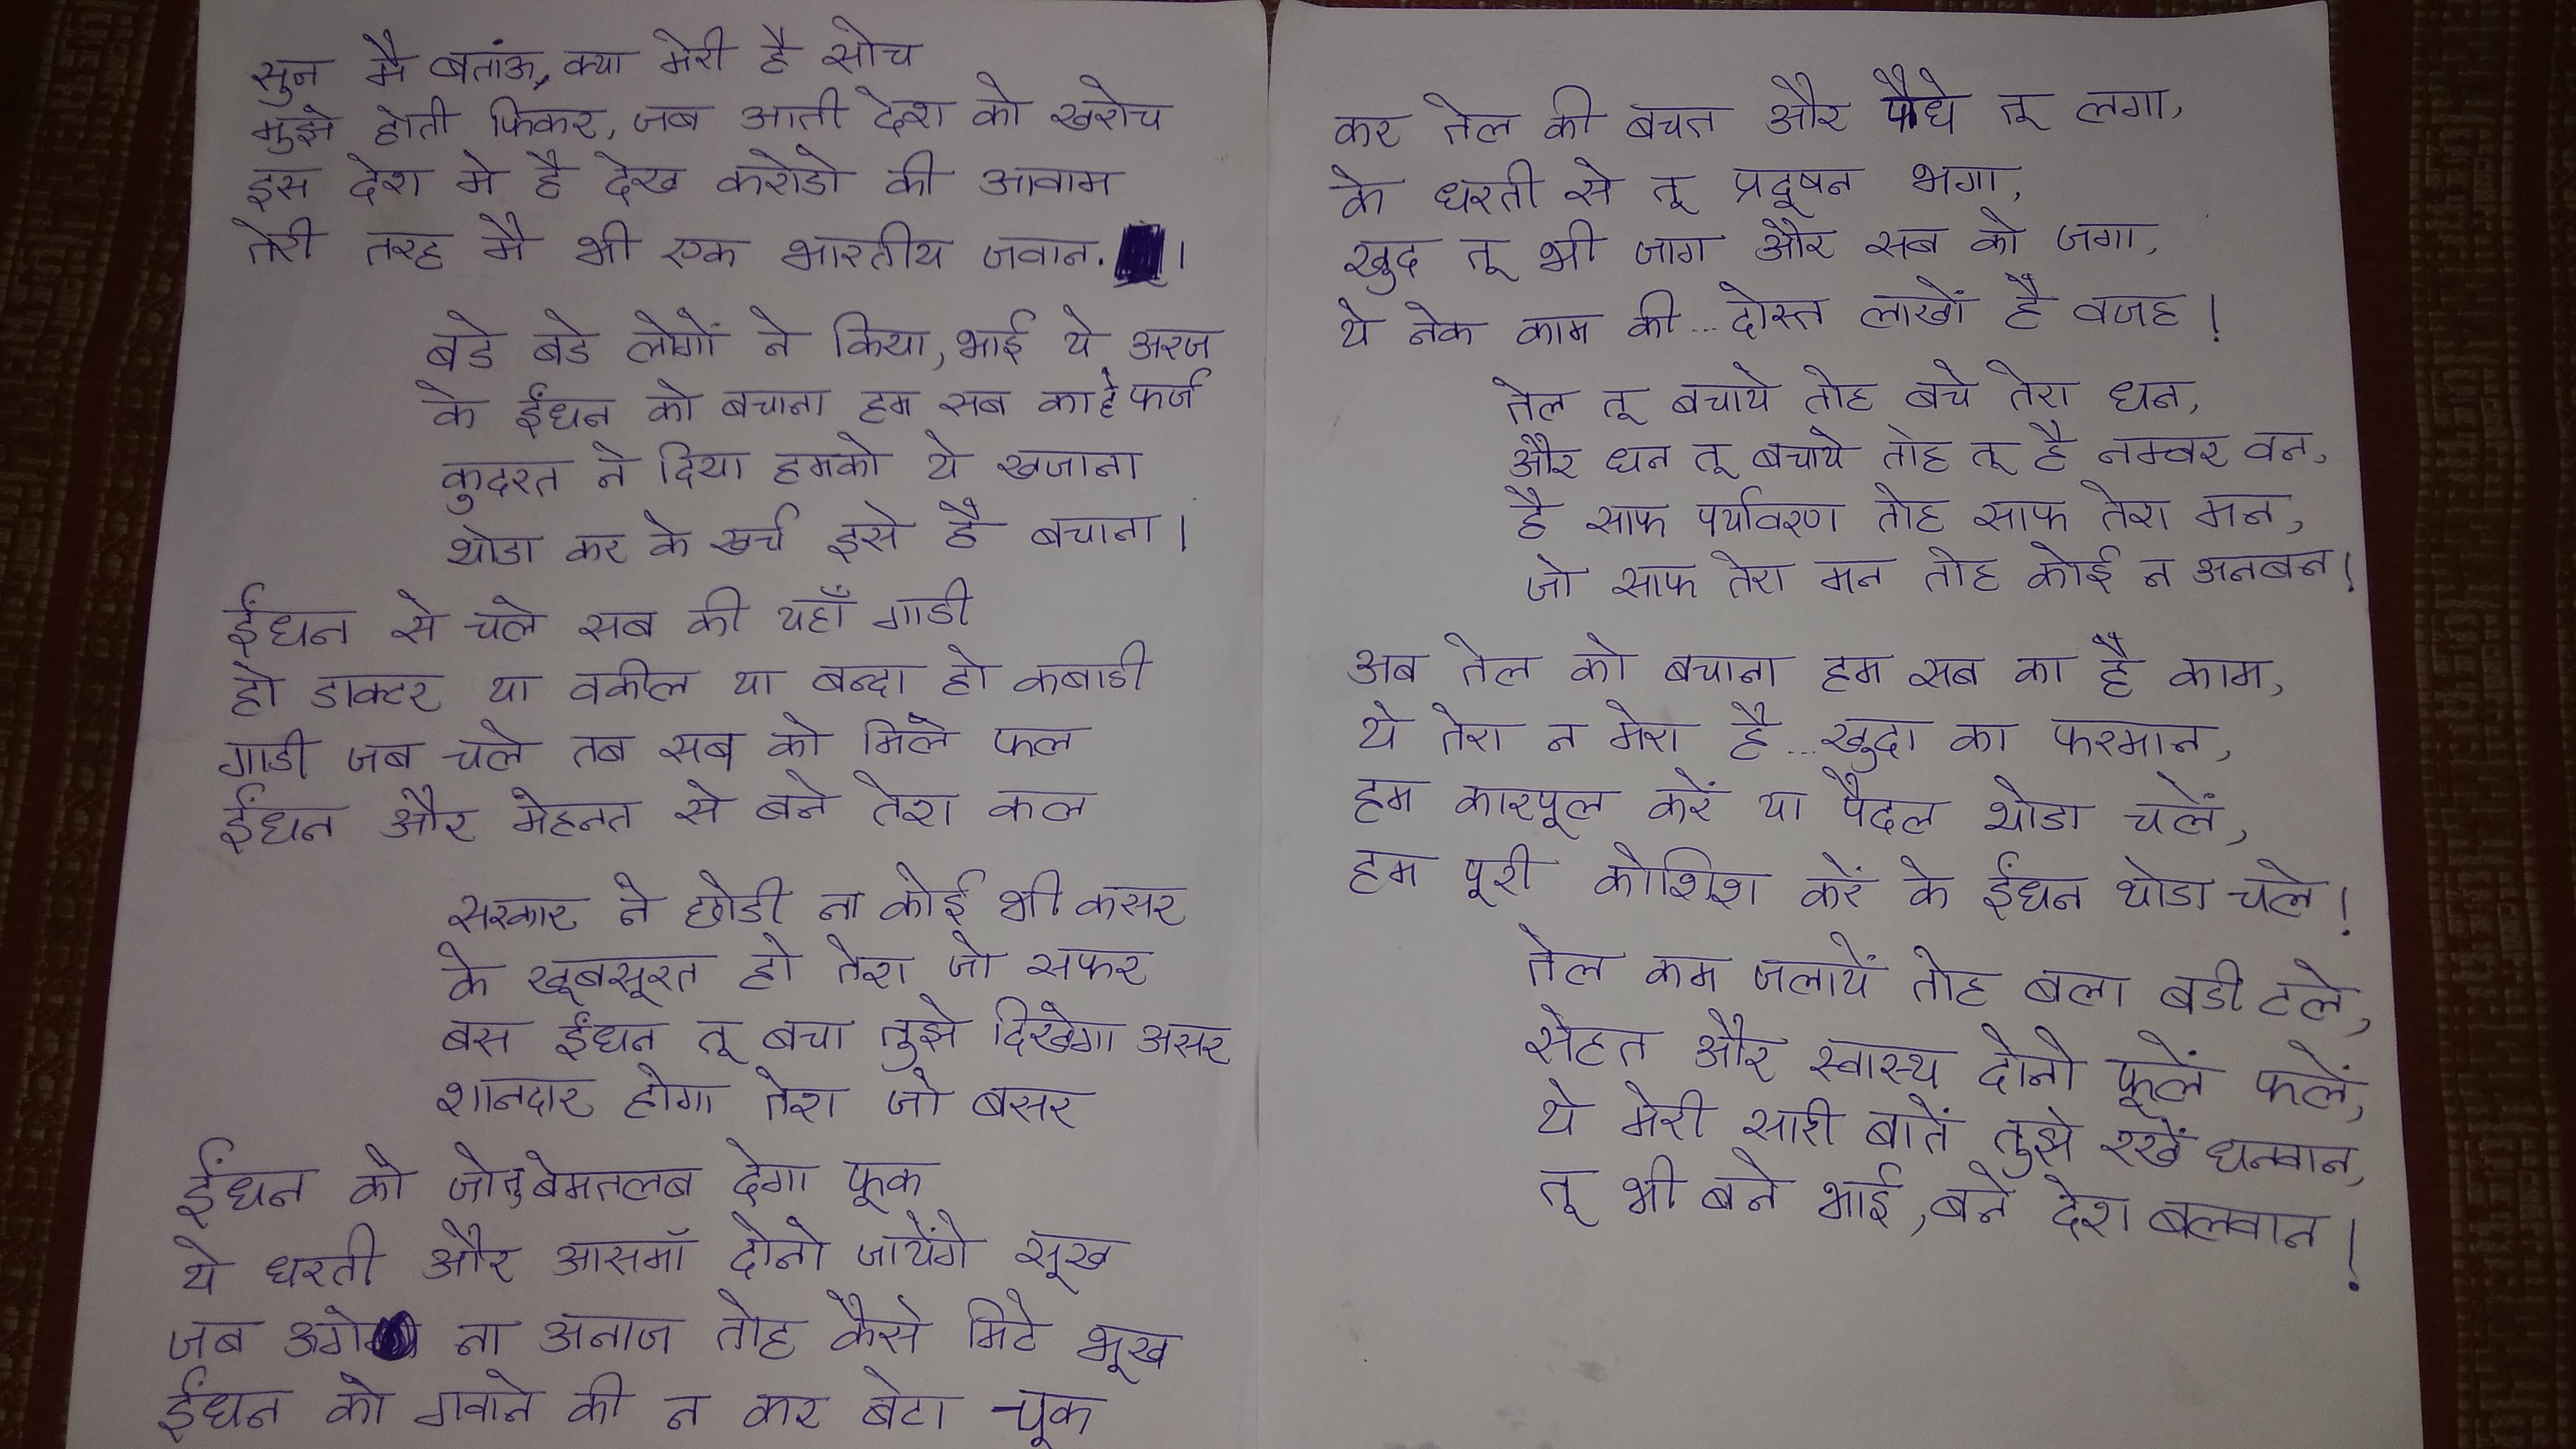 सुन मै बतांऊ, क्या मेरी है सोच
मुझे होती फिकर, जब आती देश को खरोच
इस देश मे है देख करोडो की आवाम
तेरी तरह मै भी एक भारतीय जवान.।
बडे बडे लोगों ने किया, भाई ये अरज
के ईंधन को बचाना हम सब का हे फर्ज
कुदरत ने दिया हमको ये खजाना
थोडा कर के खर्च इसे है बचाना।
ईंधन से चले सब की यहाँ गाडी
हो डाक्टर या वकील या बन्दा हो कबाडी
गाडी जब चले तब सब को मिले फल
ईंधन और मेहनत से बने तेरा कल
सरकार ने छोडी ना कोई भी कसर
के खूबसूरत हो तेरा जो सफर
बस ईंधन तू बचा तुझे दिखेगा असर
शानदार होगा तेरा जो बसर
ईंधन को जो तु बेमतलब देगा फूक
ये धरती और आसमॉ दोनो जायेंगे सूख
जब उगे ना अनाज तोह कैसे मिटे भूख
ईंधन को गवाने की न कर बेटा चूक
कर तेल की बचत और पौधे तू लगा,
के धरती से तू प्रदूषन भगा,
खुद तू भी जाग और सब को जगा,
ये नेक काम की... दोस्त लाखों है वजह!
तेल तू बचाये तोह बचे तेरा धन,
और धन तू बचाये तोह तू है नम्बर वन,
है साफ पर्यावरण तोह साफ तेरा मन,
जो साफ तेरा मन तोह कोई न अनबन!
अब तेल को बचाना हम सब का है काम,
ये तेरा न मेरा है... खुदा का फरमान,
हम कारपूल करें या पैदल थोडा चलें,
हम पूरी कोशिश करें के ईंधन थोडा चले!
तेल कम जलायें तोह बला बडी टले,
सेहत और स्वास्थ दोनो फूलें फलें,
ये मेरी सारी बातें तुझे रखें धनवान,
तू भी बने भाई, बने देश बलवान!